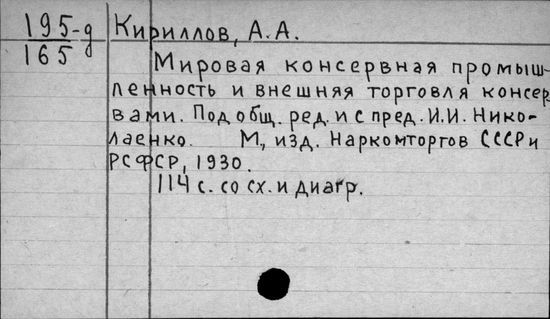 195-д Кириллов, А.А.
165
Мировая консервная промыш-
ленность и внешняя торговля консер-
вами. Под общ. ред. и с пред. И.И. Нико-
лаенко. М., изд. Наркомторгов СССР и
РСФСР, 1930.
114 с. со сх. и диагр.